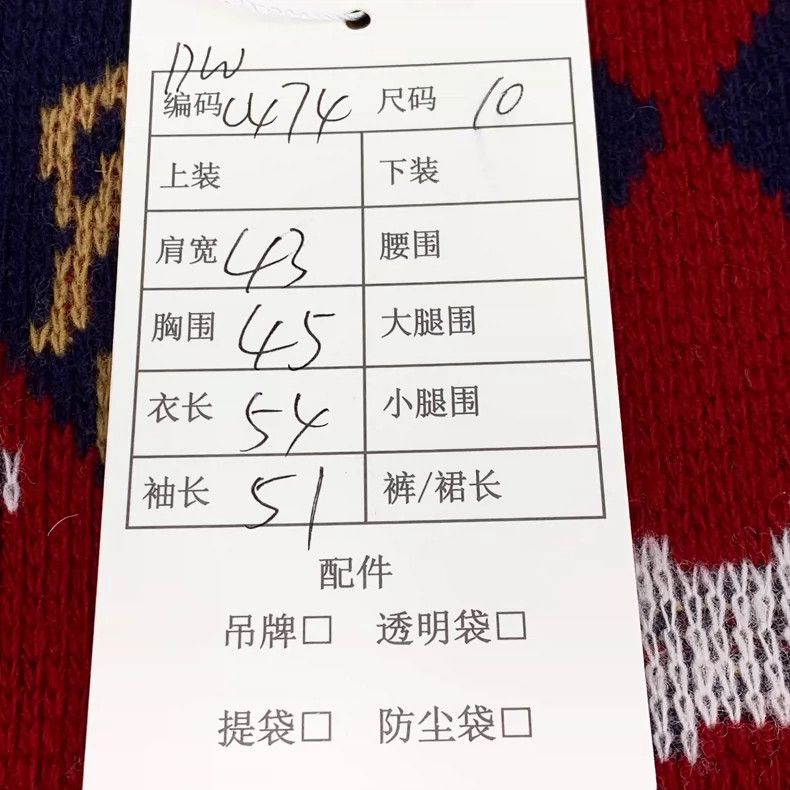 DW
编码 U474 尺码 10
上装 下装
肩宽 43 腰围
胸围 45 大腿围
衣长 54 小腿围
袖长 51 裤/裙长
配件
吊牌□ 透明袋□
提袋□ 防尘袋□